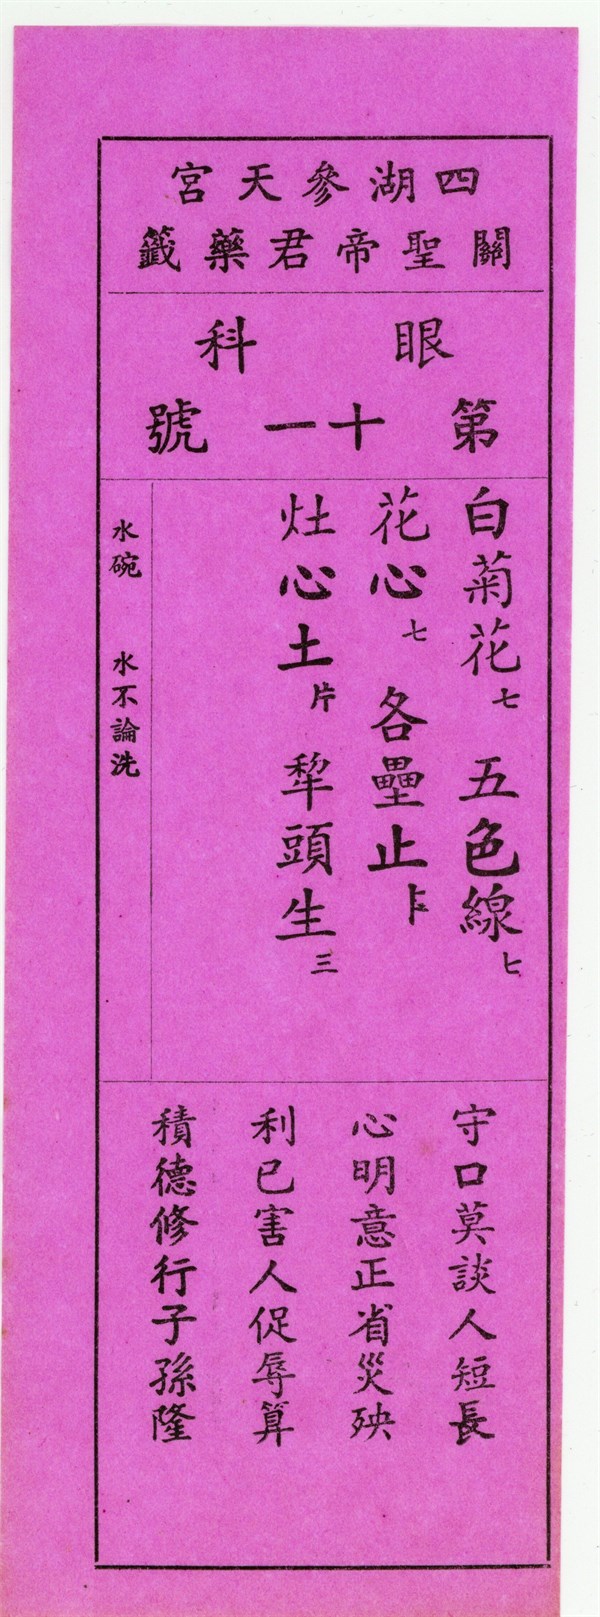 四湖參天宮
關聖帝君藥籤
眼科
第十一號
白菊花七 五色線七
花心七 各壘止
灶心土片 犂頭生三
水碗 水不論洗
守口莫談人短長
心明意正省災殃
利已害人促辱算
積德修行子孫隆